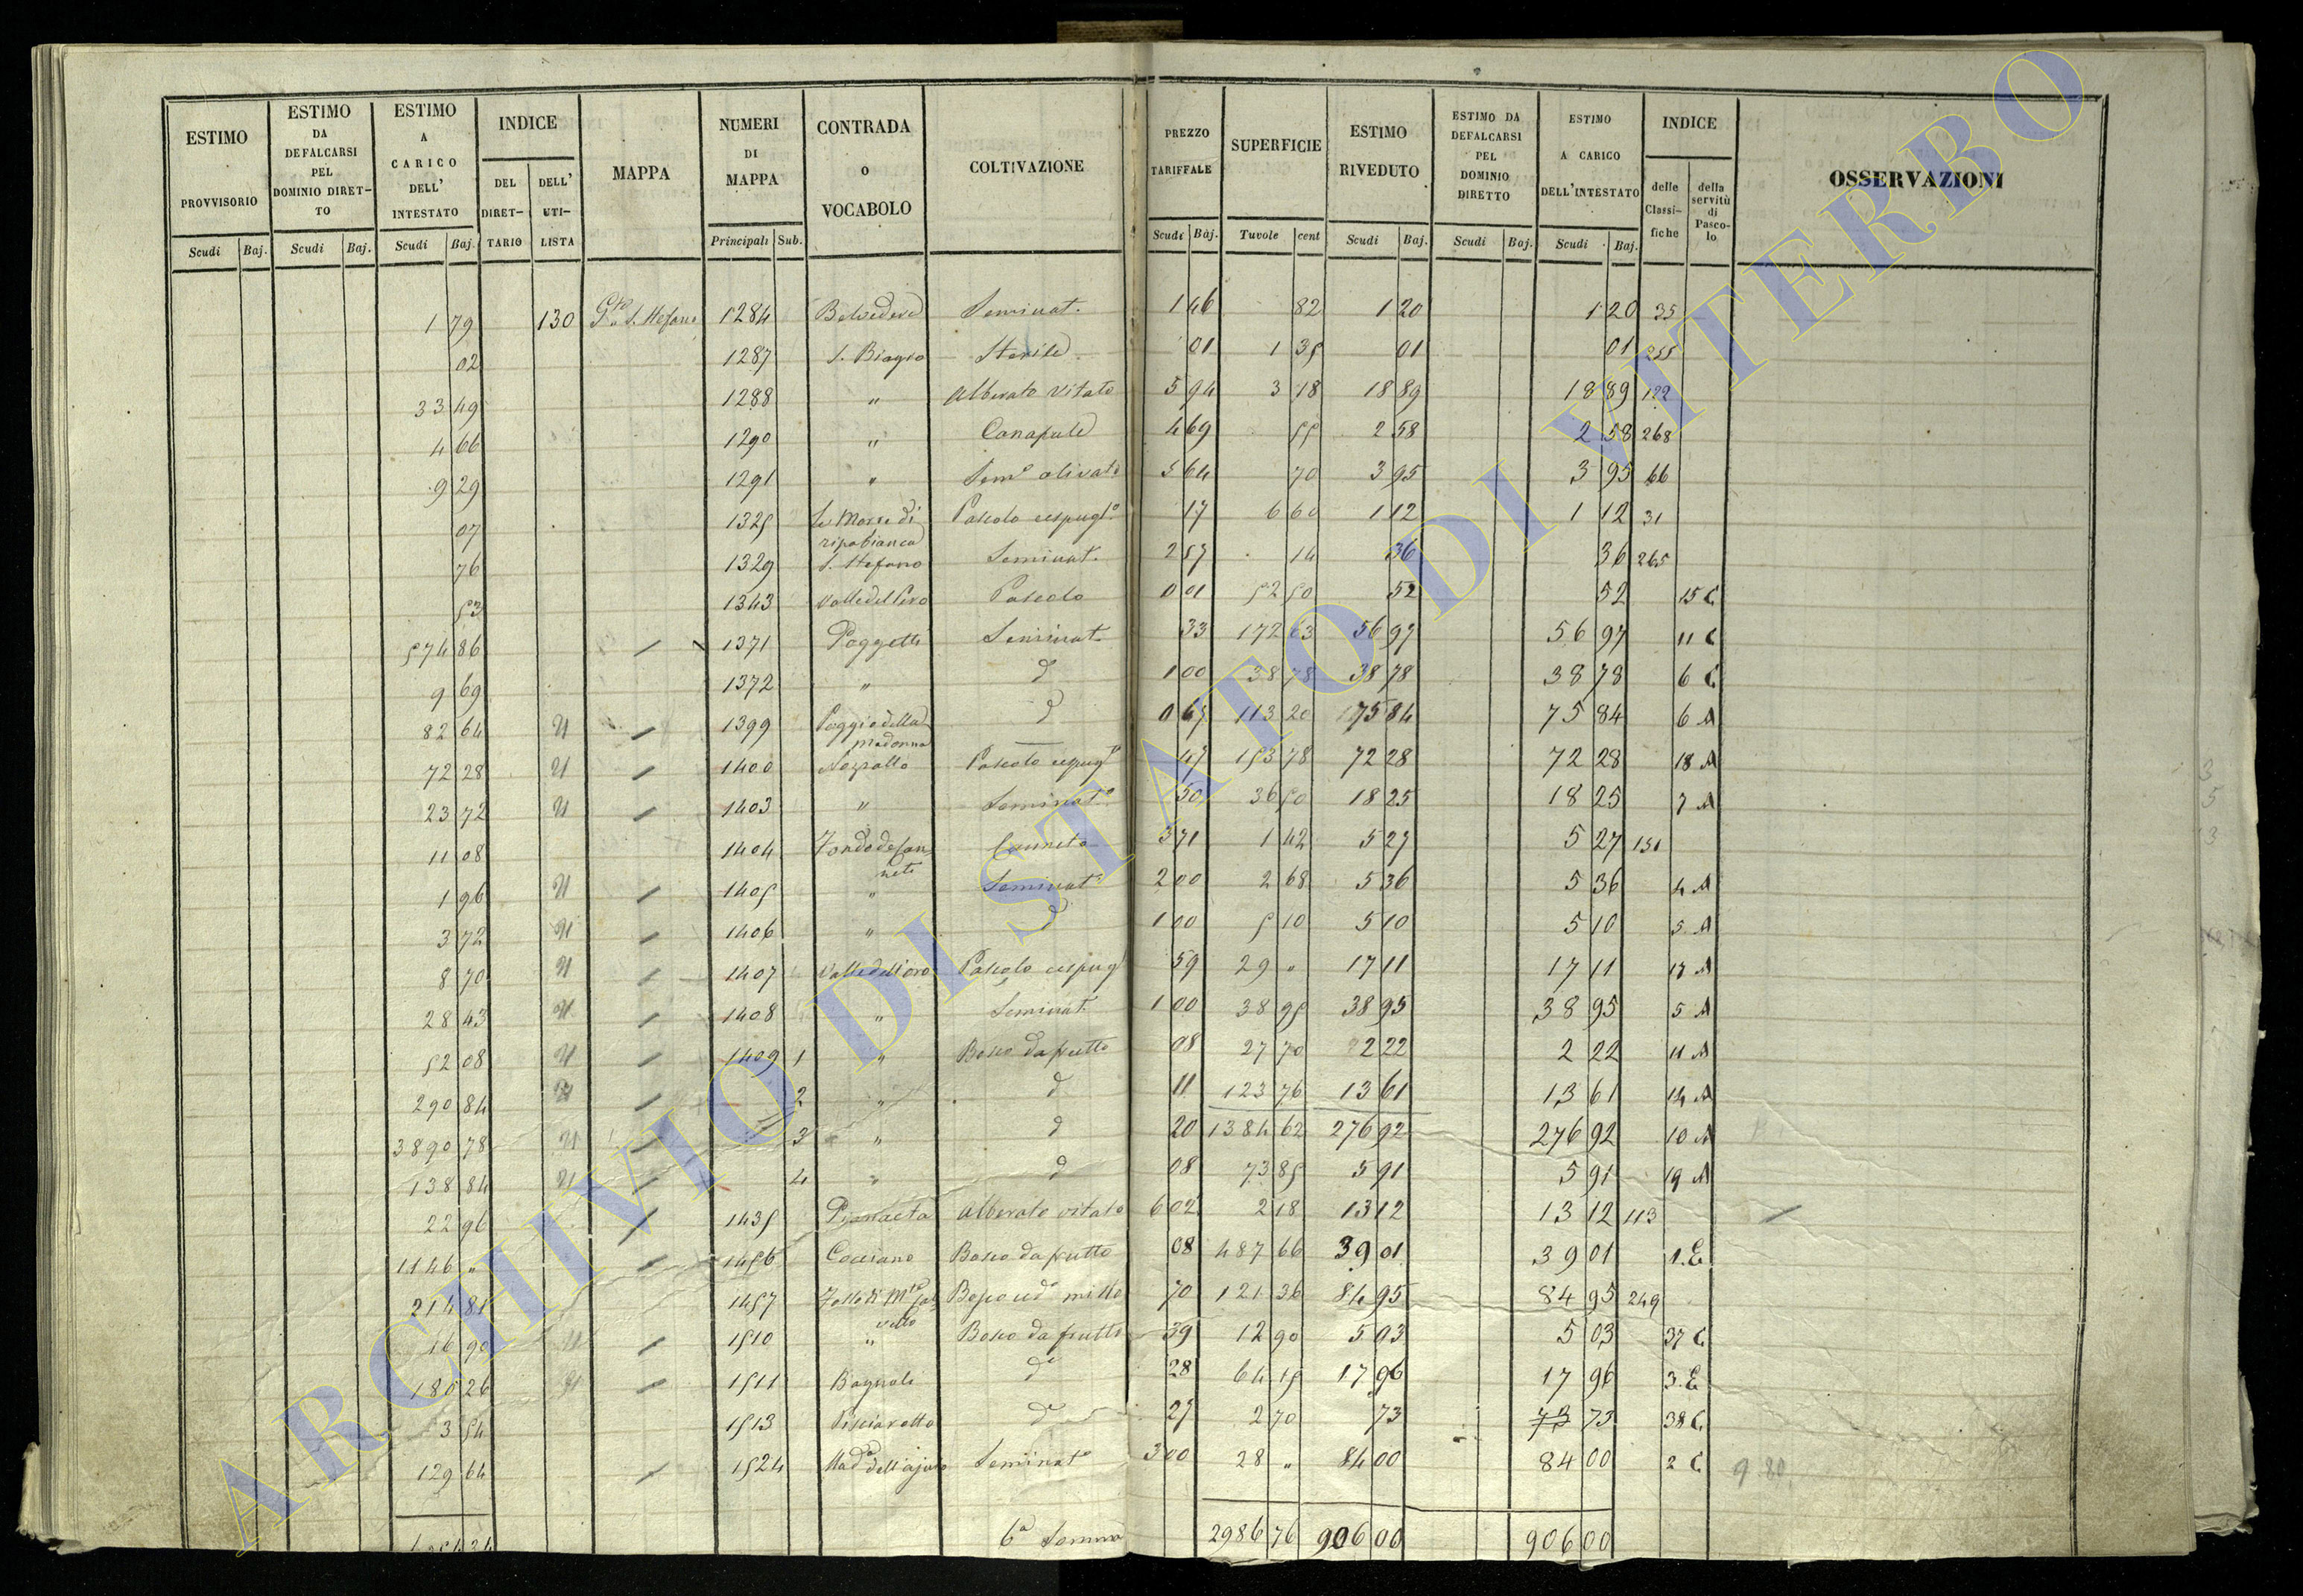 ESTIMO PROVVISORIO Scudi Baj.
ESTIMO DA DEFALCARSI PEL DOMINIO DIRET- TO Scudi Baj.
ESTIMO A CARICO DELL' INTESTATO Scudi Baj.
INDICE DEL DIRET- TARIO DELL' UTI- LISTA
MAPPA
NUMERI DI MAPPA Principali Sub.
CONTRADA O VOCABOLO
COLTIVAZIONE
PREZZO TARIFFALE Scudi Baj.
SUPERFICIE Tavole cent
ESTIMO RIVEDUTO Scudi Baj.
ESTIMO DA DEFALCARSI PEL DOMINIO DIRETTO Scudi Baj.
ESTIMO A CARICO DELL'INTESTATO Scudi Baj.
INDICE delle Classi- fiche della servitù di Pasco- lo
OSSERVAZIONI
1 79 130 S. Stefano 1284 Belvedere Seminat. 1 46 82 1 20 1 20 35
02 1287 S. Biagio Sterile 01 1 35 01 01 255
33 49 1288 " Alberato vitato 5 94 3 18 18 89 18 89 122
4 66 1290 " Canapule 4 69 55 2 58 2 58 268
9 29 1291 " Sem.o olivato 5 64 70 3 95 3 95 66
07 1325 Le Morre di ripabianca Pascolo cespugl.o 17 6 60 1 12 1 12 31
76 1329 S. Stefano Seminat. 2 57 14 36 36 265
53 1343 Valle del Pero Pascolo 0 01 52 50 52 52 15 C
574 86 1371 Poggetti Seminat. 33 172 63 56 97 56 97 11 C
9 69 1372 " d 1 00 38 78 38 78 38 78 6 C
82 64 1399 Poggio della Madonna d 0 67 113 20 75 84 75 84 6 A
72 28 1400 Pascolo cespugl.o 47 153 78 72 28 72 28 18 A
23 72 1403 " Seminat.o 50 36 50 18 25 18 25 7 A
11 08 1404 Canneto 3 71 1 42 5 27 5 27 151
1 96 1405 " Seminat.o 2 00 2 68 5 36 5 36 4 A
3 72 1406 " d 1 00 5 10 5 10 5 10 5 A
8 70 1407 Valle dell'oro Pascolo cespug 59 29 " 17 11 17 11 17 A
28 43 1408 " Seminat. 1 00 38 95 38 95 38 95 5 A
52 08 1409 1 " Bosco da frutto 08 27 70 2 22 2 22 11 A
290 84 2 " d 11 123 76 13 61 13 61 14 A
3890 78 3 " d 20 1384 62 276 92 276 92 10 A
138 84 4 " d 08 73 85 5 91 5 91 19 A
22 96 1435 Alberato vitato 6 02 2 18 13 12 13 12 113
1146 " 1456 Cocciano Bosco da frutto 08 487 66 39 01 39 01 1. E
214 81 1457 Bosco ced.o misto 70 121 36 84 95 84 95 249
16 90 1510 " Bosco da frutto 39 12 90 5 03 5 03 37 C
180 26 1511 Bagnoli d.o 28 64 15 17 96 17 96 3. E
3 54 1513 Pisciarello d.o 27 2 70 73 73 73 38 C
129 64 1524 Mad.a dell'ajuto Seminat.o 3 00 28 " 84 00 84 00 2 C 9 80
6a Somma 2986 76 906 00 906 00
ARCHIVIO DI STATO DI VITERBO